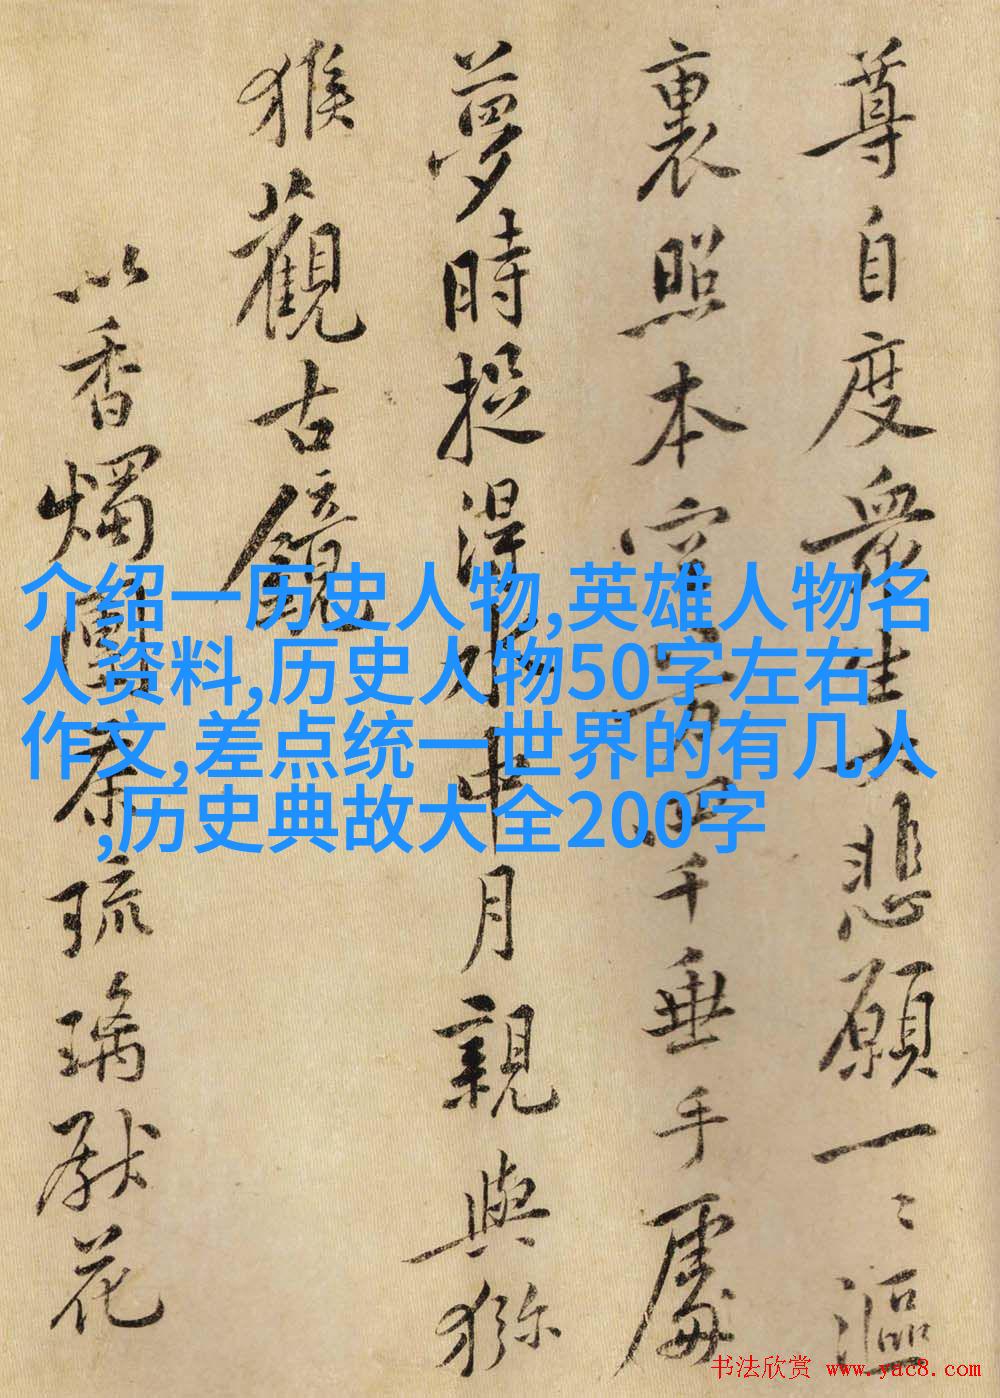 尊自度眾生大悲願一〻漚
裏照本
千垂手處
夢時捉得水中月親與獼
猴觀古鏡
以香燭團茶琉璃獻花
介绍一历史人物,英雄人物名
人资料,历史人物50字左右
作文,差点统一世界的有几人
,历史典故大全200字
书法欣赏 www.yac8.com